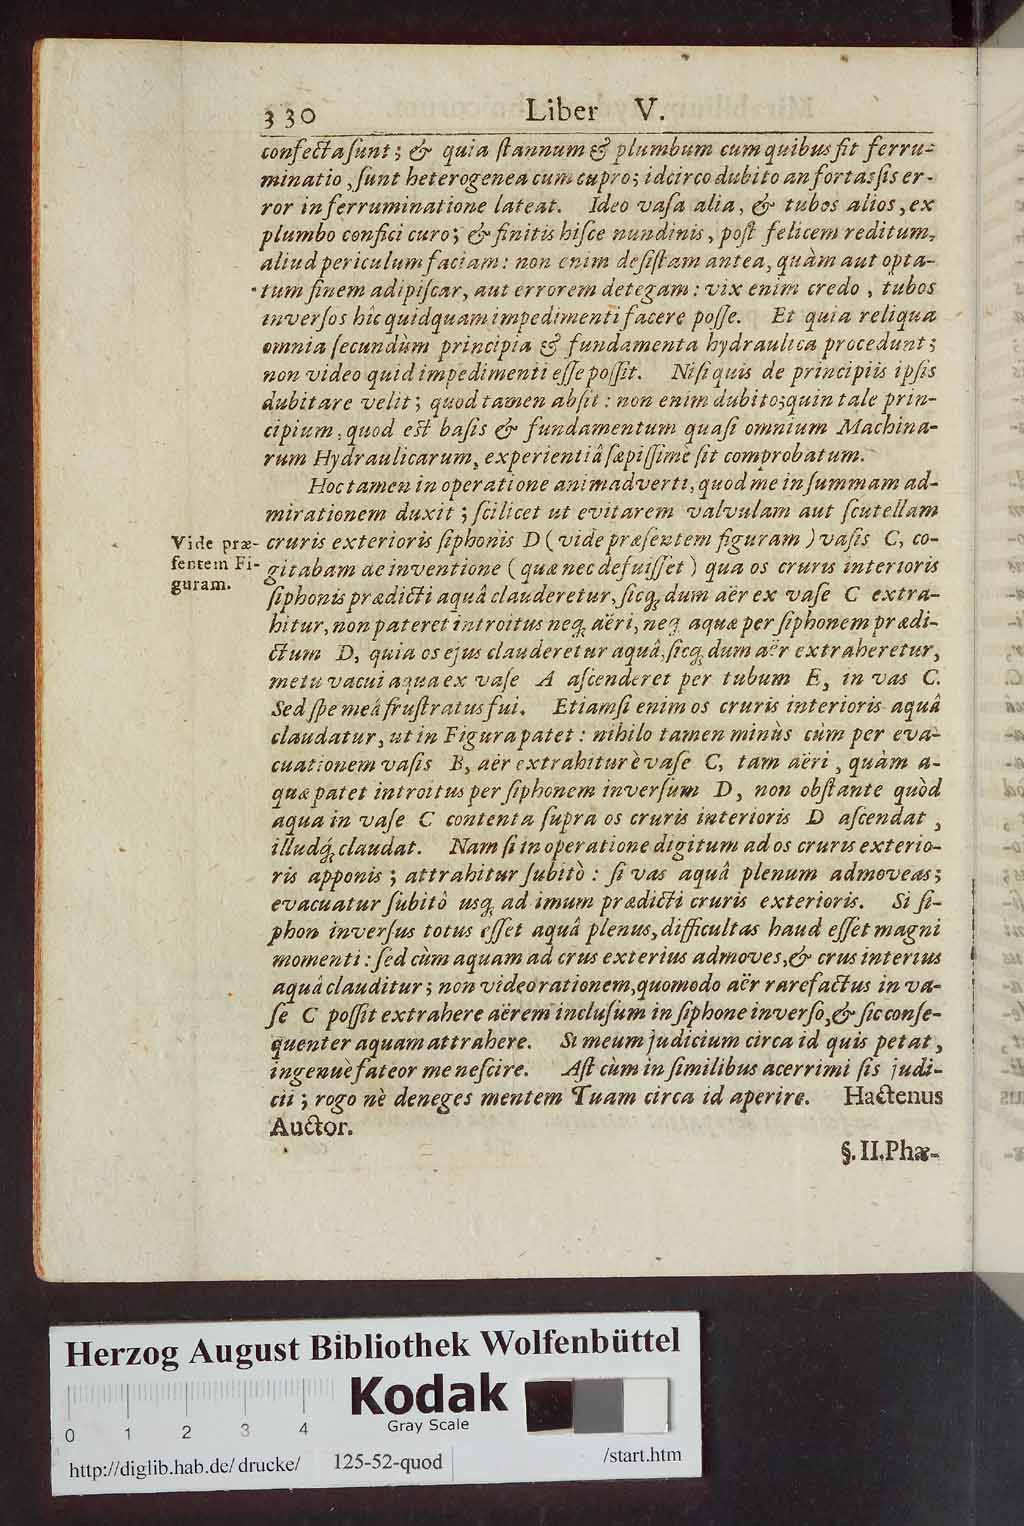 330 Liber V.
confecta ſunt; & quia ſtannum & plumbum cum quibus fit ferru-
minatio, ſunt heterogenea cum cupro; idcirco dubito an fortaſſis er-
ror in ferruminatione lateat. Ideo vaſa alia, & tubos alios, ex
plumbo confici curo; & finitis hiſce nundinis, poſt felicem reditum,
aliud periculum faciam: non enim deſiſtam antea, quàm aut opta-
tum finem adipiſcar, aut errorem detegam: vix enim credo, tubos
inverſos hic quidquam impedimenti facere poſſe. Et quia reliqua
omnia ſecundùm principia & fundamenta hydraulica procedunt;
non video quid impedimenti eſſe poſſit. Niſi quis de principiis ipſis
dubitare velit; quod tamen abſit: non enim dubito; quin tale prin-
cipium, quod est baſis & fundamentum quaſi omnium Machina-
rum Hydraulicarum, experientiâ ſæpiſſimè ſit comprobatum.
Hoc tamen in operatione animadverti, quod me in ſummam ad-
mirationem duxit; ſcilicet ut evitarem valvulam aut ſcutellam
Vide præ-
ſentem Fi-
guram.
cruris exterioris ſiphonis D (vide præſentem figuram) vaſis C, co-
gitabam de inventione (quæ nec defuiſſet) qua os cruris interioris
ſiphonis prædicti aquâ clauderetur, ſicq; dum aër ex vaſe C extra-
hitur, non pateret introitus neq; aëri, neq; aquæ per ſiphonem prædi-
ctum D, quia os ejus clauderetur aquâ, ſicq; dum aër extraheretur,
metu vacui aqua ex vaſe A aſcenderet per tubum E, in vas C.
Sed ſpe meâ fruſtratus fui. Etiamſi enim os cruris interioris aquâ
claudatur, ut in Figura patet: nihilo tamen minùs cùm per eva-
cuationem vaſis B, aër extrahitur è vaſe C, tam aëri, quàm a-
quæ patet introitus per ſiphonem inverſum D, non obſtante quòd
aqua in vaſe C contenta ſupra os cruris interioris D aſcendat,
illudq́; claudat. Nam ſi in operatione digitum ad os cruris exterio-
ris apponis; attrahitur ſubitò: ſi vas aquâ plenum admoveas;
evacuatur ſubitò usq; ad imum prædicti cruris exterioris. Si ſi-
phon inverſus totus eſſet aquâ plenus, difficultas haud eſſet magni
momenti: ſed cùm aquam ad crus exterius admoves, & crus interius
aquâ clauditur; non video rationem, quomodo aër rarefactus in va-
ſe C poſſit extrahere aërem incluſum in ſiphone inverſo, & ſic conſe-
quenter aquam attrahere. Si meum judicium circa id quis petat,
ingenuè fateor me neſcire. Aſt cùm in ſimilibus acerrimi ſis judi-
cii; rogo nè deneges mentem Tuam circa id aperire. Hactenus
Auctor.
§. II. Phæ-
Herzog August Bibliothek Wolfenbüttel
Kodak
Gray Scale
0 1 2 3 4
http://diglib.hab.de/drucke/ 125-52-quod /start.htm